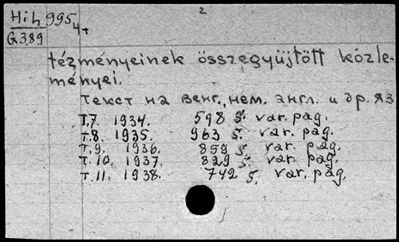 2
Hih 995
G389 4т
tézményeinek összegyűjtött közle-
ményei.
Текст на венг., нем. англ. и др. яз
Т.7. 1934. 598 S. var. pag.
Т.8. 1935. 963 S. var. pag.
Т.9. 1936. 859 S. var. pag.
Т.10. 1937. 829 S. var. pag.
Т.11. 1938. 742 S. var. pag.